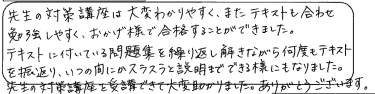 先生の対策講座は大変わかりやすく、またテキストも合わせ
勉強しやすく、おかげ様で合格することができました。
テキストに付いている問題集を繰り返し解きながら何度もテキスト
を振返り、いつの間にかスラスラと説明までできる様にもなりました。
先生の対策講座を受講できて大変助かりました。ありがとうございます。